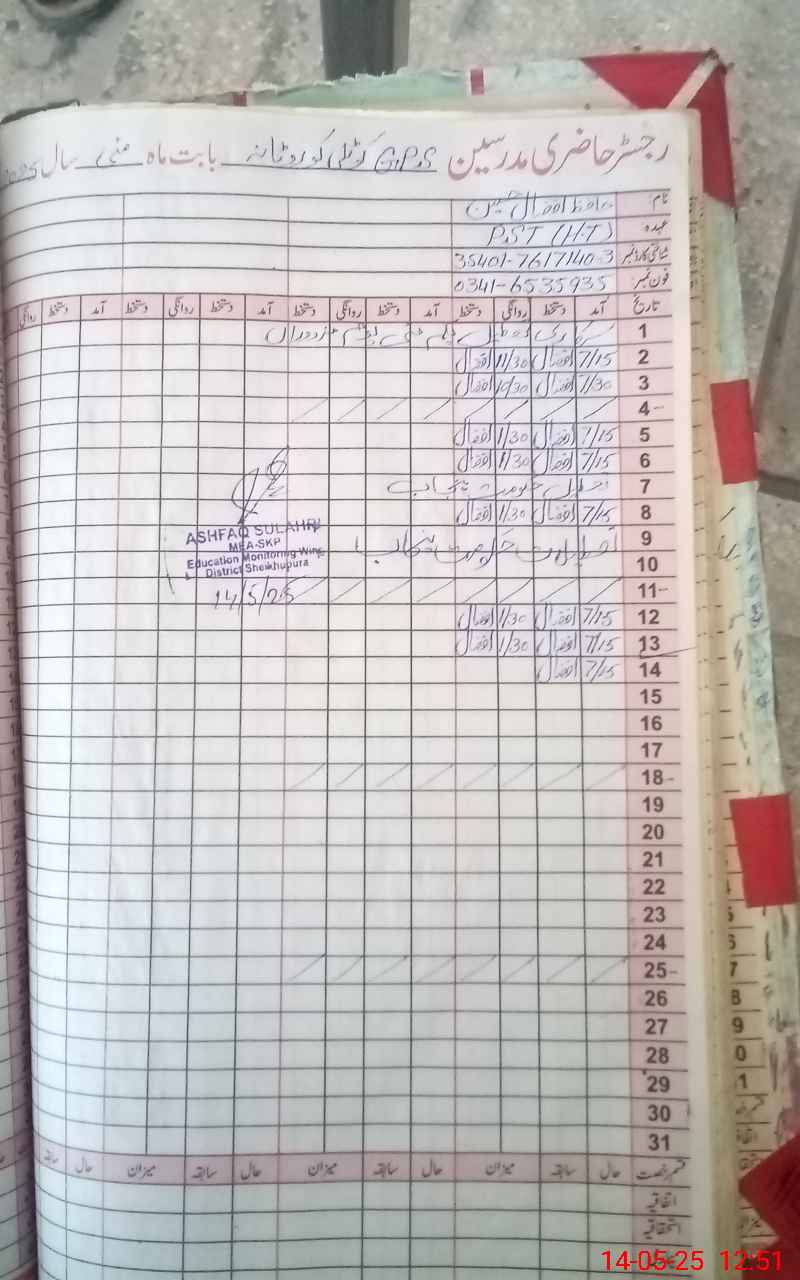 رجسٹر حاضری مدرسین GPS کوٹلی کوروٹانہ بابت ماہ مئی سال 2025
نام: حافظ افضال حسین
عہدہ PST (H.T)
شناختی کارڈ نمبر 35401-7617140-3
فون نمبر: 0341-6535935
تاریخ آمد دستخط روانگی دستخط آمد دستخط روانگی دستخط آمد دستخط روانگی دستخط آمد دستخط روانگی
1 سرکاری تعطیل یکم مئی یوم مزدوراں
2 7/15 افضال 11/30 افضال
3 7/30 افضال 10/30 افضال
4 -
5 7/15 افضال 1/30 افضال
6 7/15 افضال 1/30 افضال
7 تعطیل حکومت پنجاب
8 7/15 افضال 1/30 افضال
9 تعطیلات حکومت پنجاب
10
11 -
12 7/15 افضال 1/30 افضال
13 7/15 افضال 1/30 افضال
14 7/15 افضال
15
16
17
18 -
19
20
21
22
23
24
25 -
26
27
28
29
30
31
ASHFAQ SULAHRI
MEA-SKP
Education Monitoring Wing
District Sheikhupura
14/5/25
قسم رخصت حال سابقہ میزان حال سابقہ میزان حال سابقہ میزان حال سابقہ
اتفاقیہ
استحقاقیہ
7
8
9
0
1
14-05-25 12:51